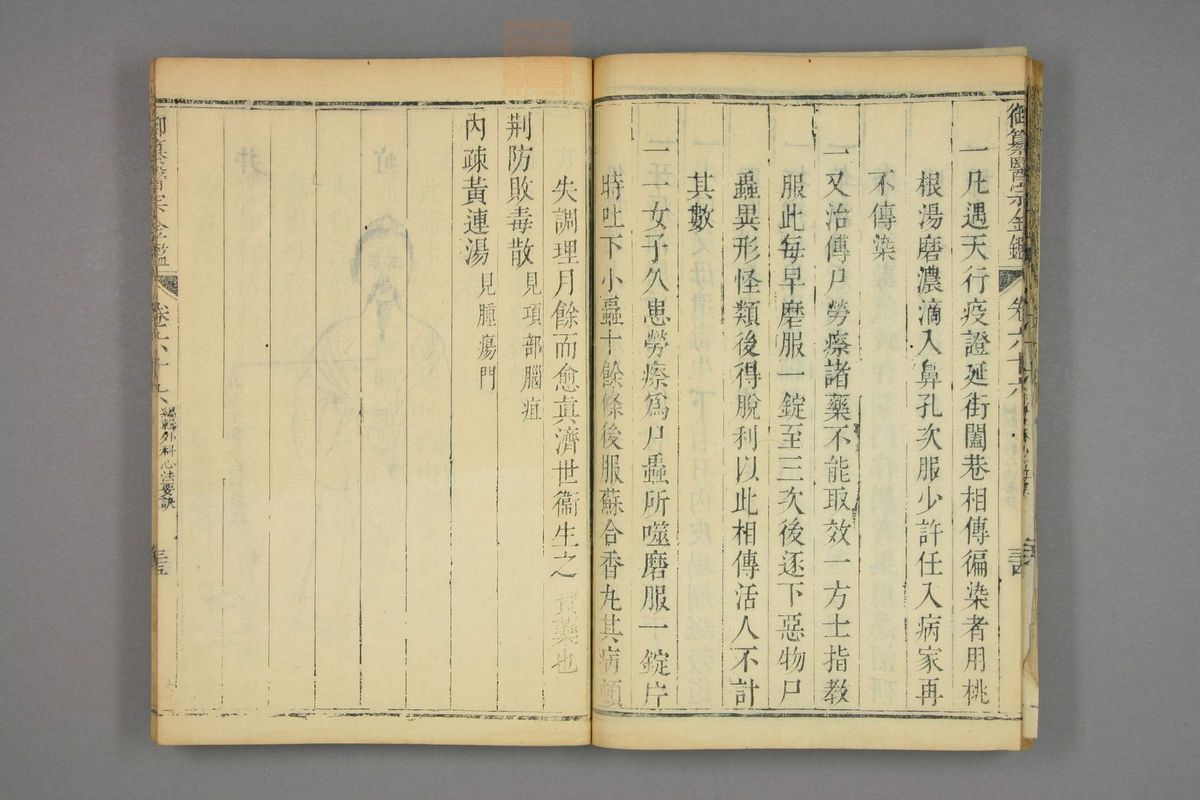 御纂醫宗金鑑 卷六十六 三
一凡遇天行疫證延街闔巷相傳徧染者用桃
根湯磨濃滴入鼻孔次服少許任入病家再
不傳染
一又治傳尸勞瘵諸藥不能取效一方士指教
服此每早磨服一錠至三次後逐下惡物尸
蟲異形怪類後得脫利以此相傳活人不計
其數
一一女子久患勞瘵爲尸蟲所噬磨服一錠片
時吐下小蟲十餘條後服蘇合香丸其病頓
失調理月餘而愈眞濟世衞生之寶藥也
荆防敗毒散 見項部腦疽
內疎黃連湯 見腫瘍門
御纂醫宗金鑑 卷六十六 編輯外科心法要訣